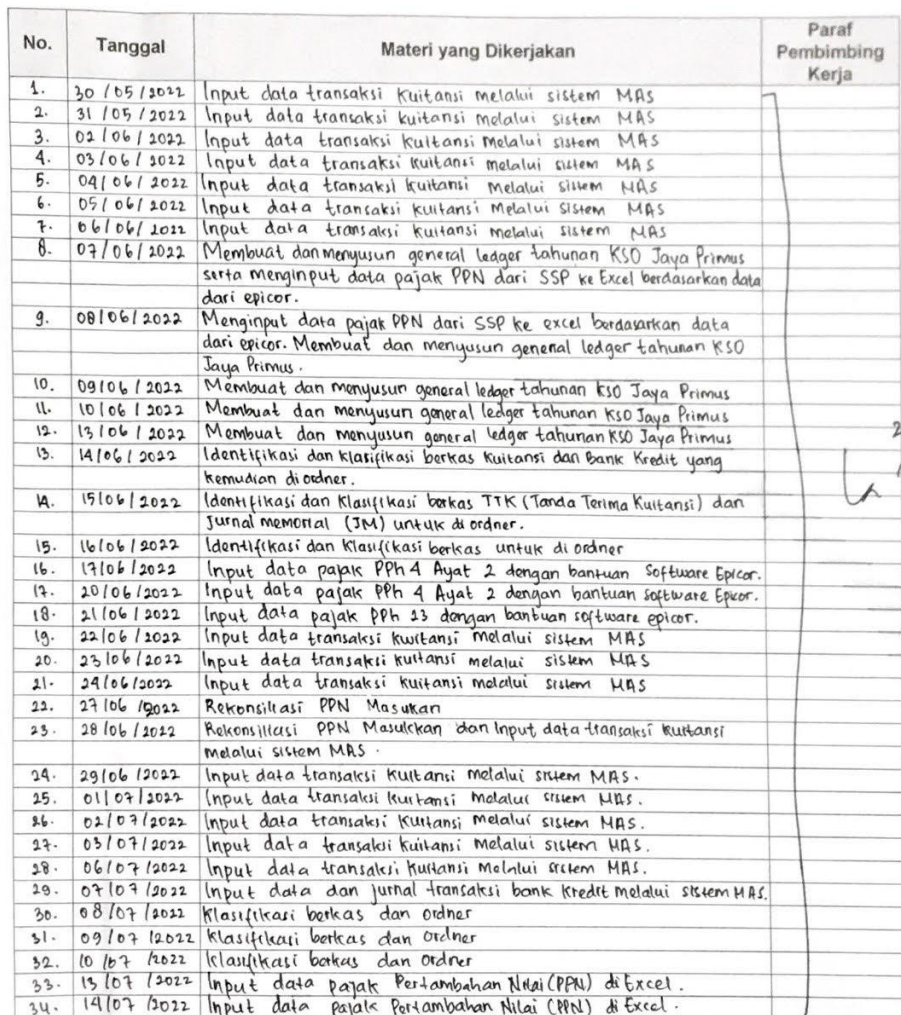 No. Tanggal Materi yang Dikerjakan Paraf Pembimbing Kerja
1. 30/05/2022 Input data transaksi kuitansi melalui sistem MAS
2. 31/05/2022 Input data transaksi kuitansi melalui sistem MAS
3. 02/06/2022 Input data transaksi kuitansi melalui sistem MAS
4. 03/06/2022 Input data transaksi kuitansi melalui sistem MAS
5. 04/06/2022 Input data transaksi kuitansi melalui sistem MAS
6. 05/06/2022 Input data transaksi kuitansi melalui sistem MAS
7. 06/06/2022 Input data transaksi kuitansi melalui sistem MAS
8. 07/06/2022 Membuat dan menyusun general ledger tahunan KSO Jaya Primus
serta menginput data pajak PPN dari SSP ke Excel berdasarkan data
dari epicor.
9. 08/06/2022 Menginput data pajak PPN dari SSP ke excel berdasarkan data
dari epicor. Membuat dan menyusun general ledger tahunan KSO
Jaya Primus.
10. 09/06/2022 Membuat dan menyusun general ledger tahunan KSO Jaya Primus
11. 10/06/2022 Membuat dan menyusun general ledger tahunan KSO Jaya Primus
12. 13/06/2022 Membuat dan menyusun general ledger tahunan KSO Jaya Primus
13. 14/06/2022 Identifikasi dan klasifikasi berkas kuitansi dan Bank Kredit yang
kemudian di ordner.
14. 15/06/2022 Identifikasi dan klasifikasi berkas TTK (Tanda Terima Kuitansi) dan
Jurnal memorial (JM) untuk di ordner.
15. 16/06/2022 Identifikasi dan klasifikasi berkas untuk di ordner
16. 17/06/2022 Input data pajak PPh 4 Ayat 2 dengan bantuan Software Epicor.
17. 20/06/2022 Input data pajak PPh 4 Ayat 2 dengan bantuan software Epicor.
18. 21/06/2022 Input data pajak PPh 23 dengan bantuan software epicor.
19. 22/06/2022 Input data transaksi kuitansi melalui sistem MAS
20. 23/06/2022 Input data transaksi kuitansi melalui sistem MAS
21. 24/06/2022 Input data transaksi kuitansi melalui sistem MAS
22. 27/06/2022 Rekonsiliasi PPN Masukan
23. 28/06/2022 Rekonsiliasi PPN Masukkan dan Input data transaksi kuitansi
melalui sistem MAS.
24. 29/06/2022 Input data transaksi kuitansi melalui sistem MAS.
25. 01/07/2022 Input data transaksi kuitansi melalui sistem MAS.
26. 02/07/2022 Input data transaksi kuitansi melalui sistem MAS.
27. 03/07/2022 Input data transaksi kuitansi melalui sistem MAS.
28. 06/07/2022 Input data transaksi kuitansi melalui sistem MAS.
29. 07/07/2022 Input data dan jurnal transaksi bank kredit melalui sistem MAS.
30. 08/07/2022 Klasifikasi berkas dan ordner
31. 09/07/2022 Klasifikasi berkas dan ordner
32. 10/07/2022 Klasifikasi berkas dan ordner
33. 13/07/2022 Input data pajak Pertambahan Nilai (PPN) di Excel.
34. 14/07/2022 Input data pajak Pertambahan Nilai (PPN) di Excel.